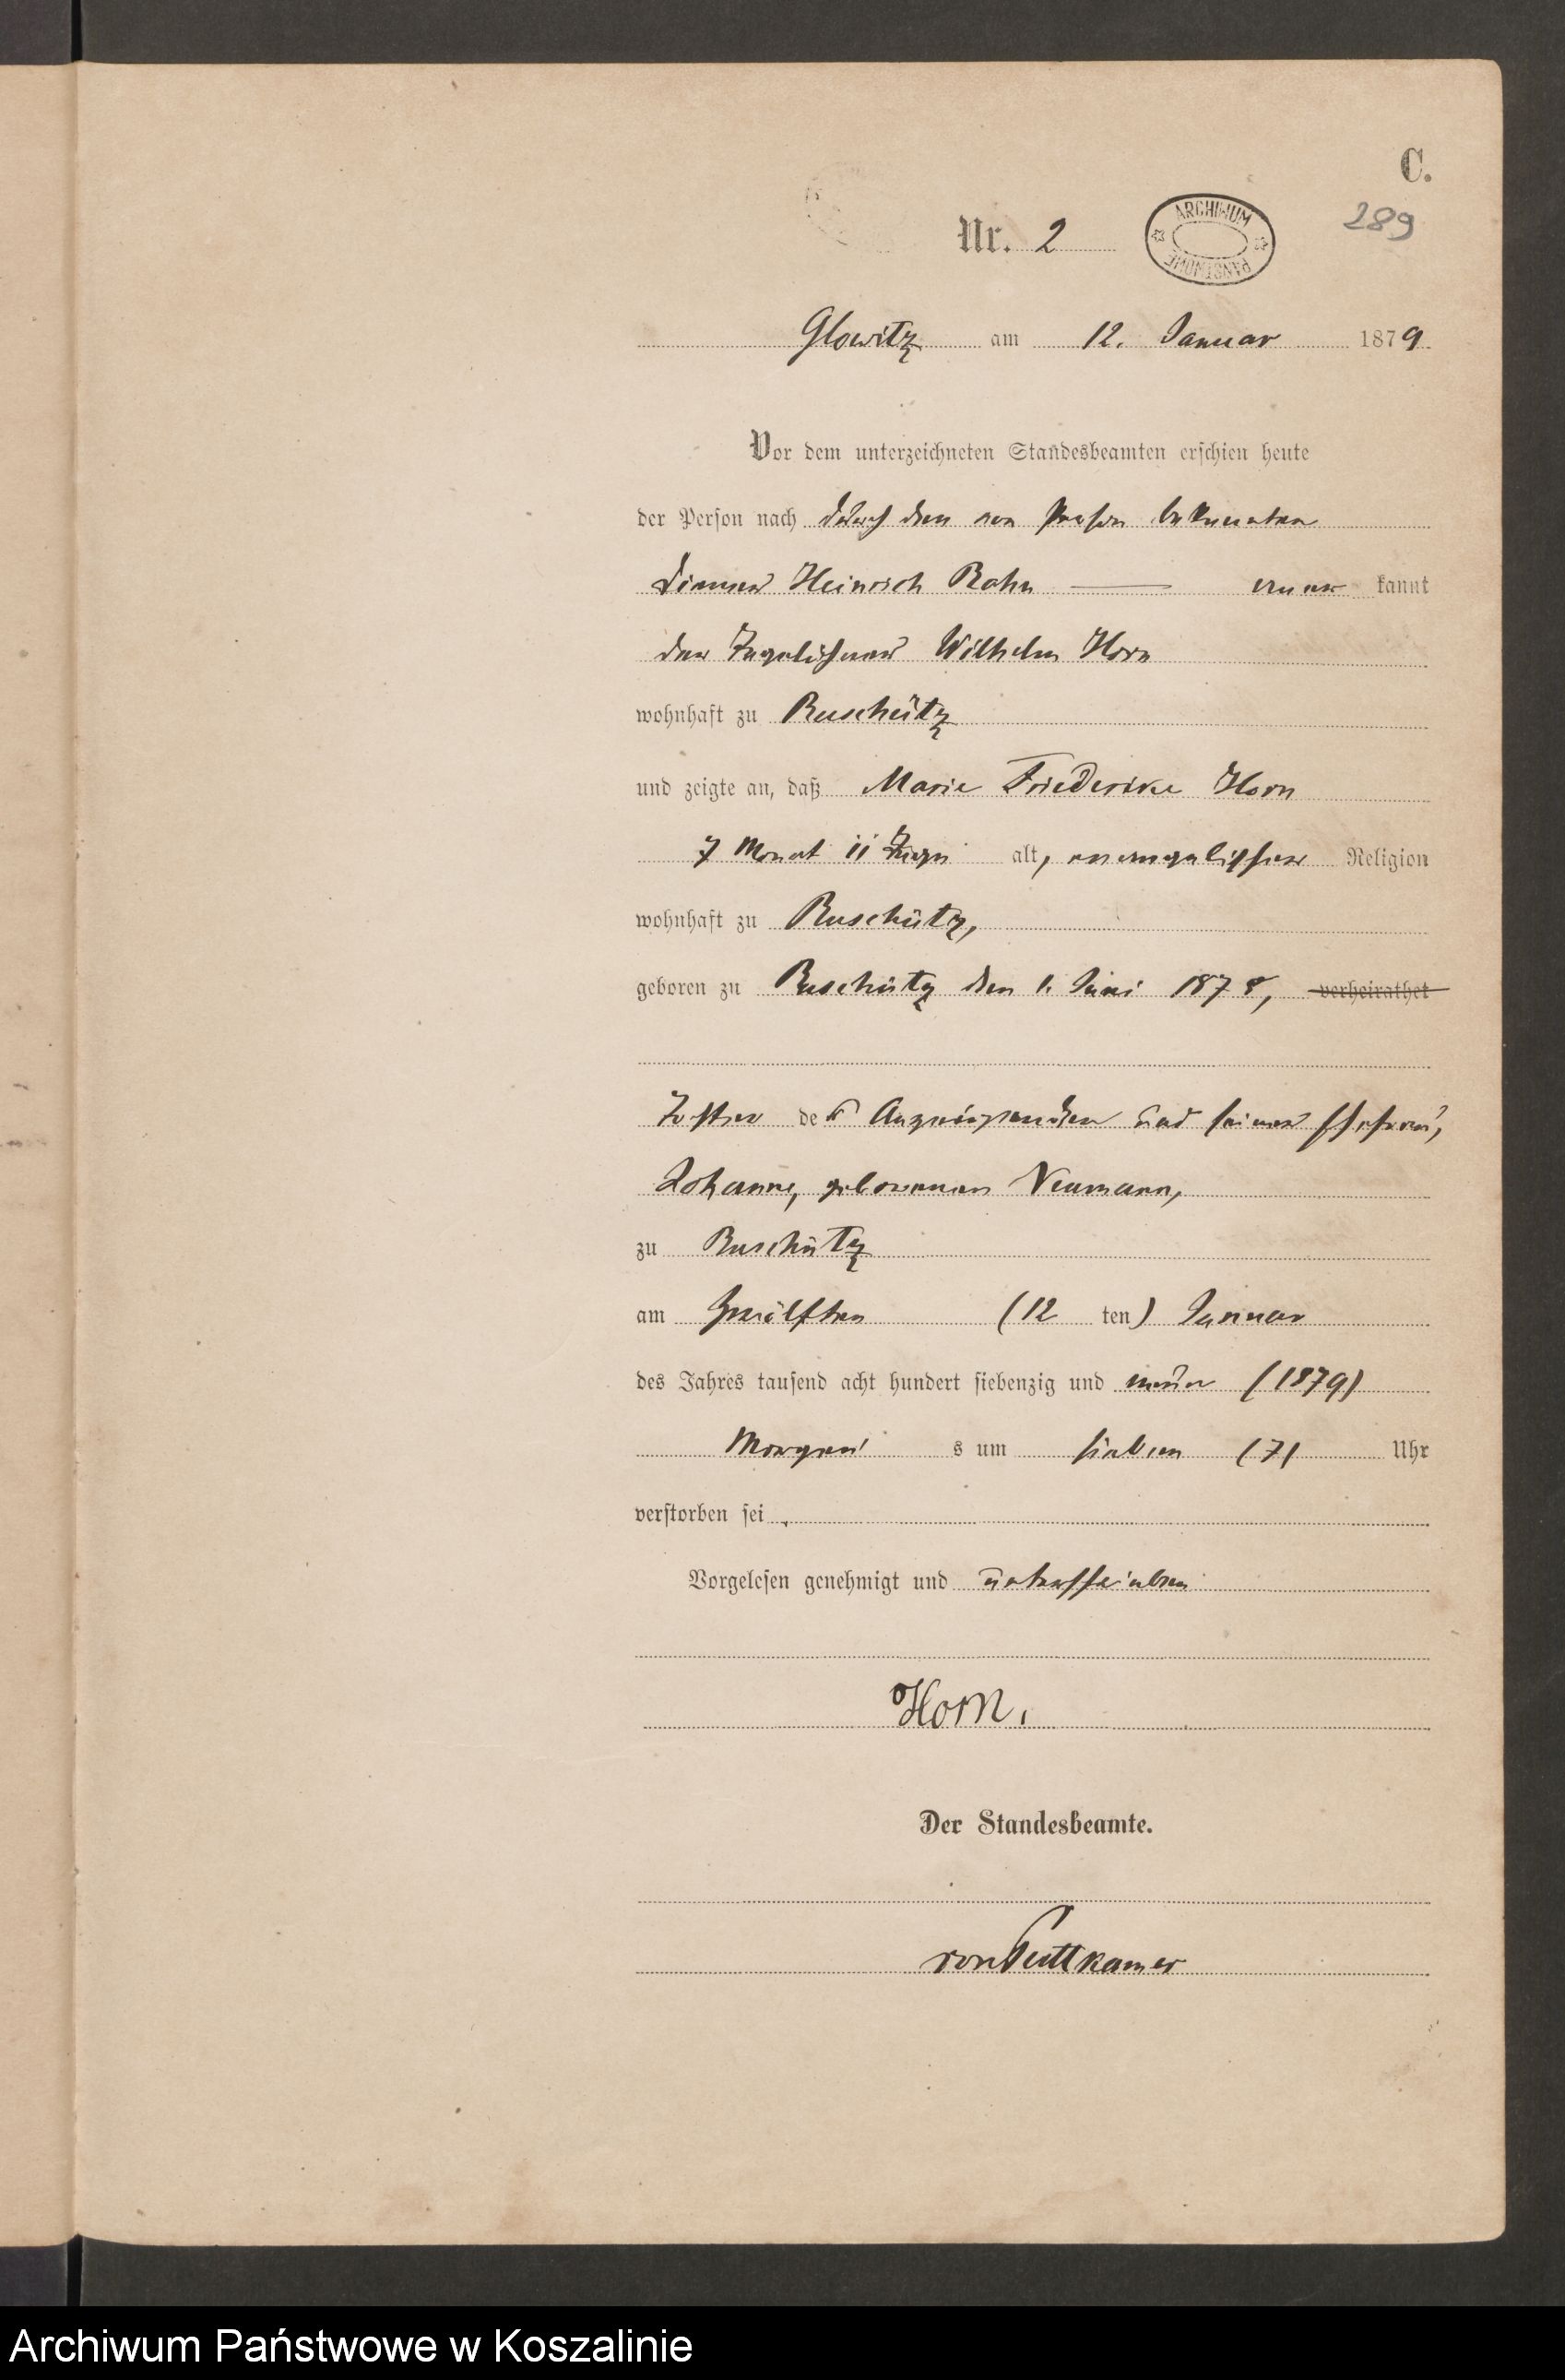 C.
289
Nr. 2
ARCHIWUM PAŃSTWOWE
Glowitz am 12. Januar 1879.
Vor dem unterzeichneten Standesbeamten erschien heute
der Person nach durch den von Person bekannten
Diener Heinrich Rahn — aner kannt
der Tagelöhner Wilhelm Horn
wohnhaft zu Ruschütz
und zeigte an, daß Marie Friederike Horn
7 Monat 11 Tage alt, evangelischer Religion
wohnhaft zu Ruschütz,
geboren zu Ruschütz den 1. Juni 1878, verheirathet
Tochter des Anzeigenden und seiner Ehefrau,
Johanne, geborenen Neumann,
zu Ruschütz
am zwölften (12 ten) Januar
des Jahres tausend acht hundert siebenzig und neun (1879)
Morgen s um sieben (7) Uhr
verstorben sei.
Vorgelesen genehmigt und unterschrieben
Horn.
Der Standesbeamte.
von Puttkamer
Archiwum Państwowe w Koszalinie